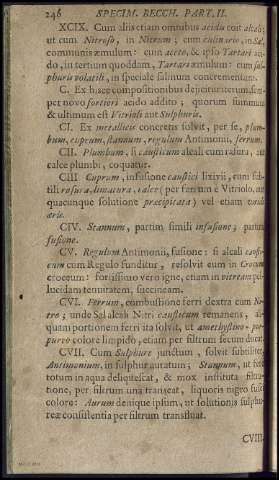 246 SPECIM. BECCH. PART. II.
XCIX. Cum aliis etiam omnibus acidis coit alcali;
ut cum Nitroso, in Nitrum; cum culinario, in Sal
communis æmulum: cum aceto, & ipso Tartari aci-
do, in tertium quoddam, Tartari æmulum: cum sul-
phuris volatili, in speciale salinum concrementum.
C. Ex hisce compositionibus dejicitur iterum, sem-
per novo fortiori acido addito; quorum summum
& ultimum est Vitrioli aut Sulphuris.
CI. Ex metallicis concretis solvit, per se, plum-
bum, cuprum, stannum, regulum Antimonii, ferrum.
CII. Plumbum, si causticum alcali cum rasura, aut
calce plumbi, coquatur.
CIII. Cuprum, infusione caustici lixivii, cum sub-
tili rasura, limatura, calce (per sal, aut e Vitriolo, aut
quacunque solutione præcipitata) vel etiam
CIV. Stannum, partim simili infusione; partim
fusione.
CV. Regulum Antimonii, fusione: si alcali causti-
cum cum Regulo funditur, resolvit eum in Crocum
croceum: fortissimo vero igne, etiam in vitream pel-
lucidam tenuitatem, succineam.
CVI. Ferrum, combustione ferri dextra cum Ni-
tro; unde Sal alcali Nitri causticum remanens, ali-
quam portionem ferri ita solvit, ut amethystino-pur-
pureo colore limpido, etiam per filtrum secum ducat.
CVII. Cum Sulphure junctum, solvit subtiliter
Antimonium, in sulphur auratum; Stannum, ut fere
totum in aqua deliquescat, & mox instituta filtra-
tione, per filtrum una transeat, liquoris nigro fusci
colore: Aurum denique ipsum, ut solutionis sulphu-
reæ consistentia per filtrum transfluat.
CVIII.